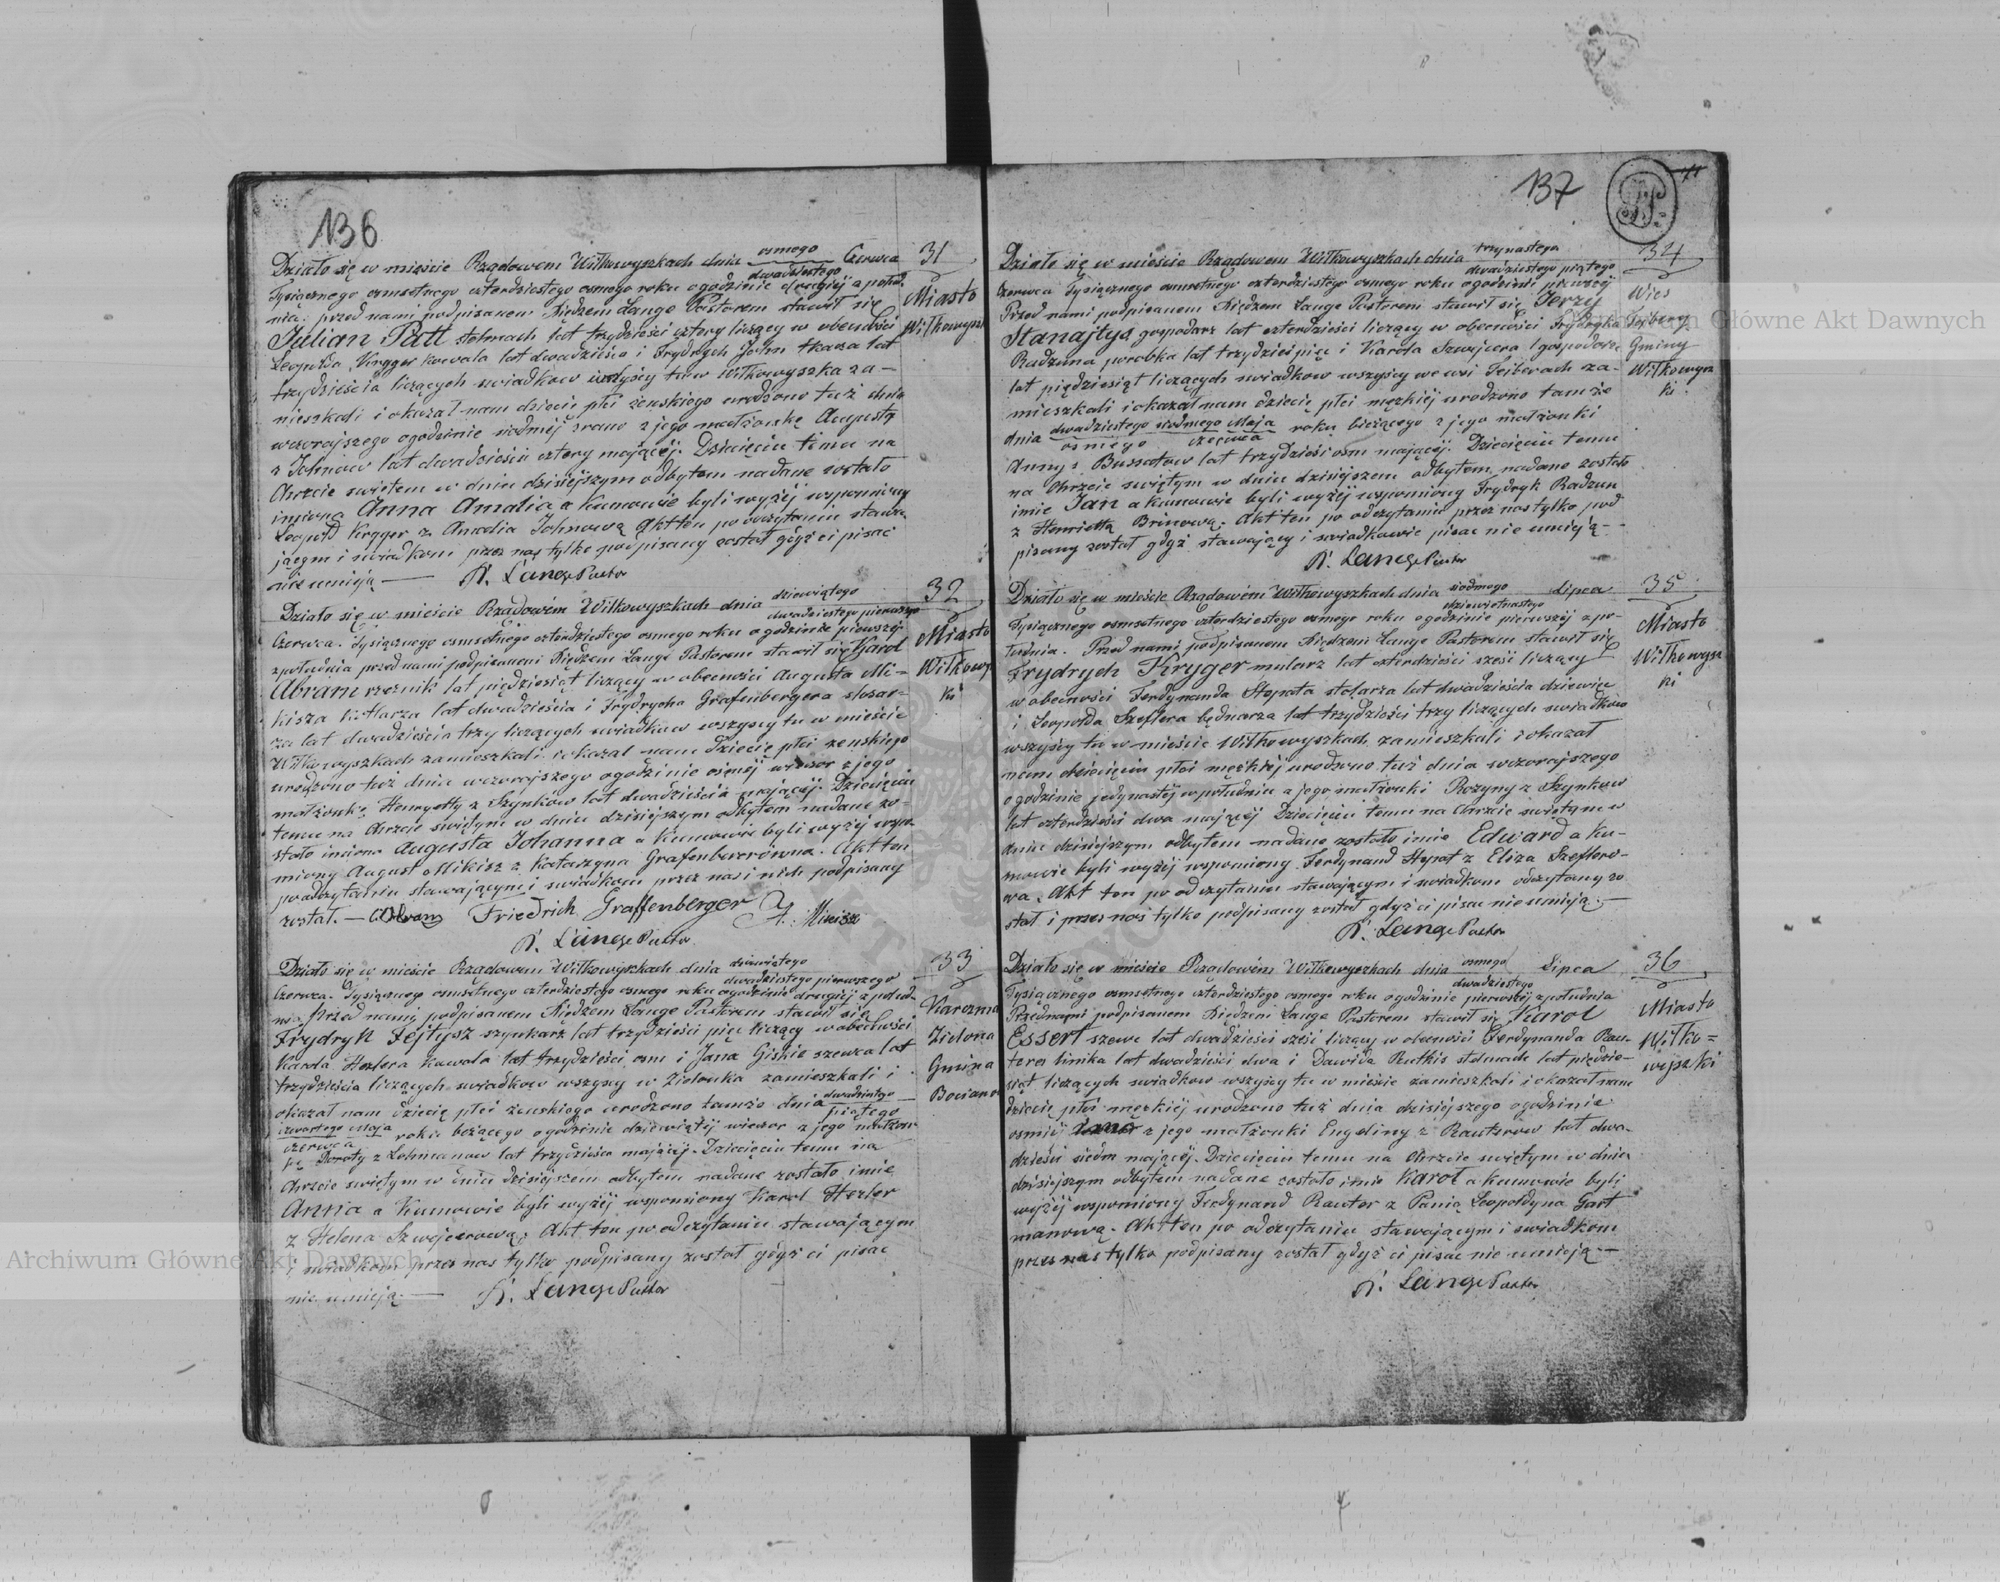 136
31
Miasto
Wilkowyszki
Działo się w mieście Rządowém Wiłkowyszkach dnia osmego / dwudziestego Czerwca
Tysiącznego osmsetnego czterdziestego osmego roku o godzinie drugiéj z połud-
nia: przed nami podpisanem Xiędzem Lange Pastorem stawił się
Julian Patt stelmach lat trzydzieści cztery liczący w obecności
Leopolda Krygger kowala lat dwadzieścia i Frydrych John tkacza lat
trzydzieścia liczących swiadkow wszyscy tu w Wiłkowyszka za-
mieszkali i okazał nam dziecię płci żenskiego urodzone tuż dnia
wczorajszego o godzinie siodméj zrana z jego małżonkę Augustą
z Johnow lat dwadzieścia cztery mającéj. Dziecięciu temu na
Chrzcie swiętem w dniu dzisiejszym odbytem nadane zostało
imiona Anna Amalia a Kumowie byli wyżéj wspomniony
Leopold Krygger z Amalia Johnową Akt ten po odczytaniu stawa-
jącym i swiadkom przez nas tylko podpisany został gdyż ci pisać
nie umieją — Lange Pastor
32
Miasto
Wiłkowysz
ki
Działo się w mieście Rządowém Wiłkowyszkach dnia dziewiątego / dwudziestego pierwszego
Czerwca. Tysiącznego osmsetnego czterdziestego osmego roku o godzinie pierwszéj
z południa przed nami podpisanem Xiędzem Lange Pastorem stawił się Karol
Abram rzeznik lat pięćdziesiąt liczący w obecności Augusta Mi-
kisza kotlarza lat dwadzieścia i Frydrycha Grafenbergera slusar-
za lat dwadzieścia trzy liczących swiadkow wszyscy tu w mieście
Wiłkowyszkach zamieszkali i okazał nam dziecię płci żenskiego
urodzono tuż dnia wczorajszego o godzinie osméj wieczor z jego
małżonki Henryetty z Szynkow lat dwadzieścia mającéj. Dziecięciu
temu na Chrzcie swiętym w dniu dzisiejszym odbytem nadane zo-
stało imiona Augusta Johanna a Kumowie byli wyżéj wspo-
miony August Mikisz z Katarzyna Grafenbererówna. Akt ten
po odczytaniu stawającym i swiadkom przez nas i nich podpisany
został. — CAbram Friedrich Graffenberger A. Mikisz
Lange Pastor
33
Karczma
Zielona
Gmina
Bocian
Działo się w mieście Rządowem Wiłkowyszkach dnia dziewiątego / dwudziestego pierwszego
Czerwca. Tysiącznego osmsetnego czterdziestego osmego roku o godzinie drugiéj z połud-
nia Przed nami podpisanem Xiędzem Lange Pastorem stawił się
Frydryk Fejtysz szynkarz lat trzydzieści pięć liczący w obecności
Karola Hezlera kowala lat trzydzieści osm i Jana Giskie szewca lat
trzydzieścia liczących swiadkow wszyscy w Zielonka zamieszkali i
okazał nam dziecię płci żenskiego urodzono tamże dnia dwudziestego / piątego
czwartego Maja / czerwca roku bieżącego o godzinie dziewiątéj wieczor z jego małżon-
ki Doroty z Lehmanow lat trzydzieścia mającéj. Dziecięciu temu na
Chrzcie swiętym w dniu dzisiejszem odbytem nadane zostało imie
Anna a Kumowie byli wyżéj wspomiony Karol Hezler
z Helena Szwejcerową. Akt ten po odczytaniu stawającym
i swiadkom przez nas tylko podpisany został gdyż ci pisać
nie umieją. — Lange Pastor
137
34
Wies
Fejbery
Gminy
Wiłkowysz
ki
Działo się w mieście Rządowem Wiłkowyszkach dnia trzynastego / dwudziestego piątego
Czerwca Tysiącznego osmsetnego czterdziestego osmego roku o godzinie pierwszéj
Przed nami podpisanem Xiędzem Lange Pastorem stawił się Jerzy
Stanajtys gospodarz lat czterdzieści liczący w obecności Frydryka
Radzuna parobka lat trzydzieści pięc i Karola Szwejcera gospodarza
lat pięćdziesiąt liczących swiadkow wszyscy we wsi Fejberach za-
mieszkali i okazał nam dziecię płci męzkiéj urodzono tamże
dnia dwudziestego siodmego Maja / osmego czerwca roku bieżącego z jego małżonki
Anny z Bussatow lat trzydzieści osm mającéj. Dziecięciu temu
na Chrzcie swiętym w dniu dzisiejszem odbytem nadane zostało
imie Jan a kumowie byli wyżéj wspomiony Frydryk Radzun
z Henriettą Brinową. Akt ten po odczytaniu przez nas tylko pod-
pisany został gdyż stawający i swiadkowie pisac nie umieją. —
Lange Pastor
35
Miasto
Wiłkowysz
ki
Działo się w mieście Rządowém Wiłkowyszkach dnia siodmego / dziewietnastego Lipca
Tysiącznego osmsetnego czterdziestego osmego roku o godzinie pierwszéj z po-
łudnia. Przed nami podpisanem Xiędzem Lange Pastorem stawił się
Frydrych Kryger mularz lat czterdzieści sześć liczący
w obecności Ferdynanda Stepata stolarza lat dwadzieścia dziewięc
i Leopolda Szeflera będnarza lat trzydzieści trzy liczących swiadkow
wszyscy tu w mieście Wiłkowyszkach zamieszkali i okazał
nam dziecięciu płci męzkiéj urodzono tuż dnia wczorajszego
o godzinie jedynastéj w południu z jego małżonki Rozyny z Szynkow
lat czterdzieści dwa mającéj Dziecięciu temu na Chrzcie swiętym w
dniu dzisiejszym odbytem nadane zostało imie Edward a ku-
mowie byli wyżéj wspomiony Ferdynand Stepat z Eliza Szeflero-
wa. Akt ten po odczytaniu stawającym i swiadkom odczytany zo-
stał i przez nas tylko podpisany został gdyż ci pisac nie umieją. —
Lange Pastor
36
Miasto
Wiłko=
wyszki
Działo się w mieście Rządowém Wiłkowyszkach dnia osmego / dwudziestego Lipca
Tysiącznego osmsetnego czterdziestego osmego roku o godzinie pierwszéj z południa
Przed nami podpisanem Xiędzem Lange Pastorem stawił się Karol
Essert szewc lat dwadzieści sześć liczący w obecności Ferdynanda Rau-
tera linika lat dwadzieści dwa i Dawida Rutkis stelmach lat pięćdzie-
siąt liczących swiadkow wszyscy tu w mieście zamieszkali i okazał nam
dziecię płci męzkiéj urodzono tuż dnia dzisiéjszego o godzinie
osméj z jego małżonki Engeliny z Rauterow lat dwa-
dzieści siedm mającéj. Dziecięciu temu na Chrzcie swiętym w dniu
dzisiejszym odbytem nadane zostało imie Karol a kumowie byli
wyżéj wspomiony Ferdynand Rauter z Panią Leopoldyna Gart
manową. Akt ten po odczytaniu stawającym i swiadkom
przez nas tylko podpisany został gdyż ci pisac nie umieją. —
Lange Pastor
Archiwum Główne Akt Dawnych
Archiwum Główne Akt Dawnych